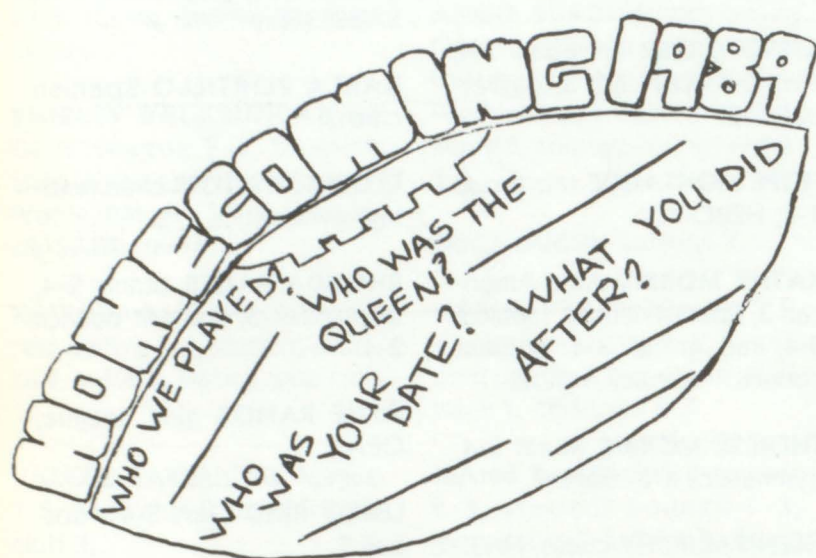 HOMECOMING 1989
WHO WE PLAYED?
WHO WAS THE
QUEEN?
WHO WAS
YOUR DATE?
WHAT YOU DID
AFTER?